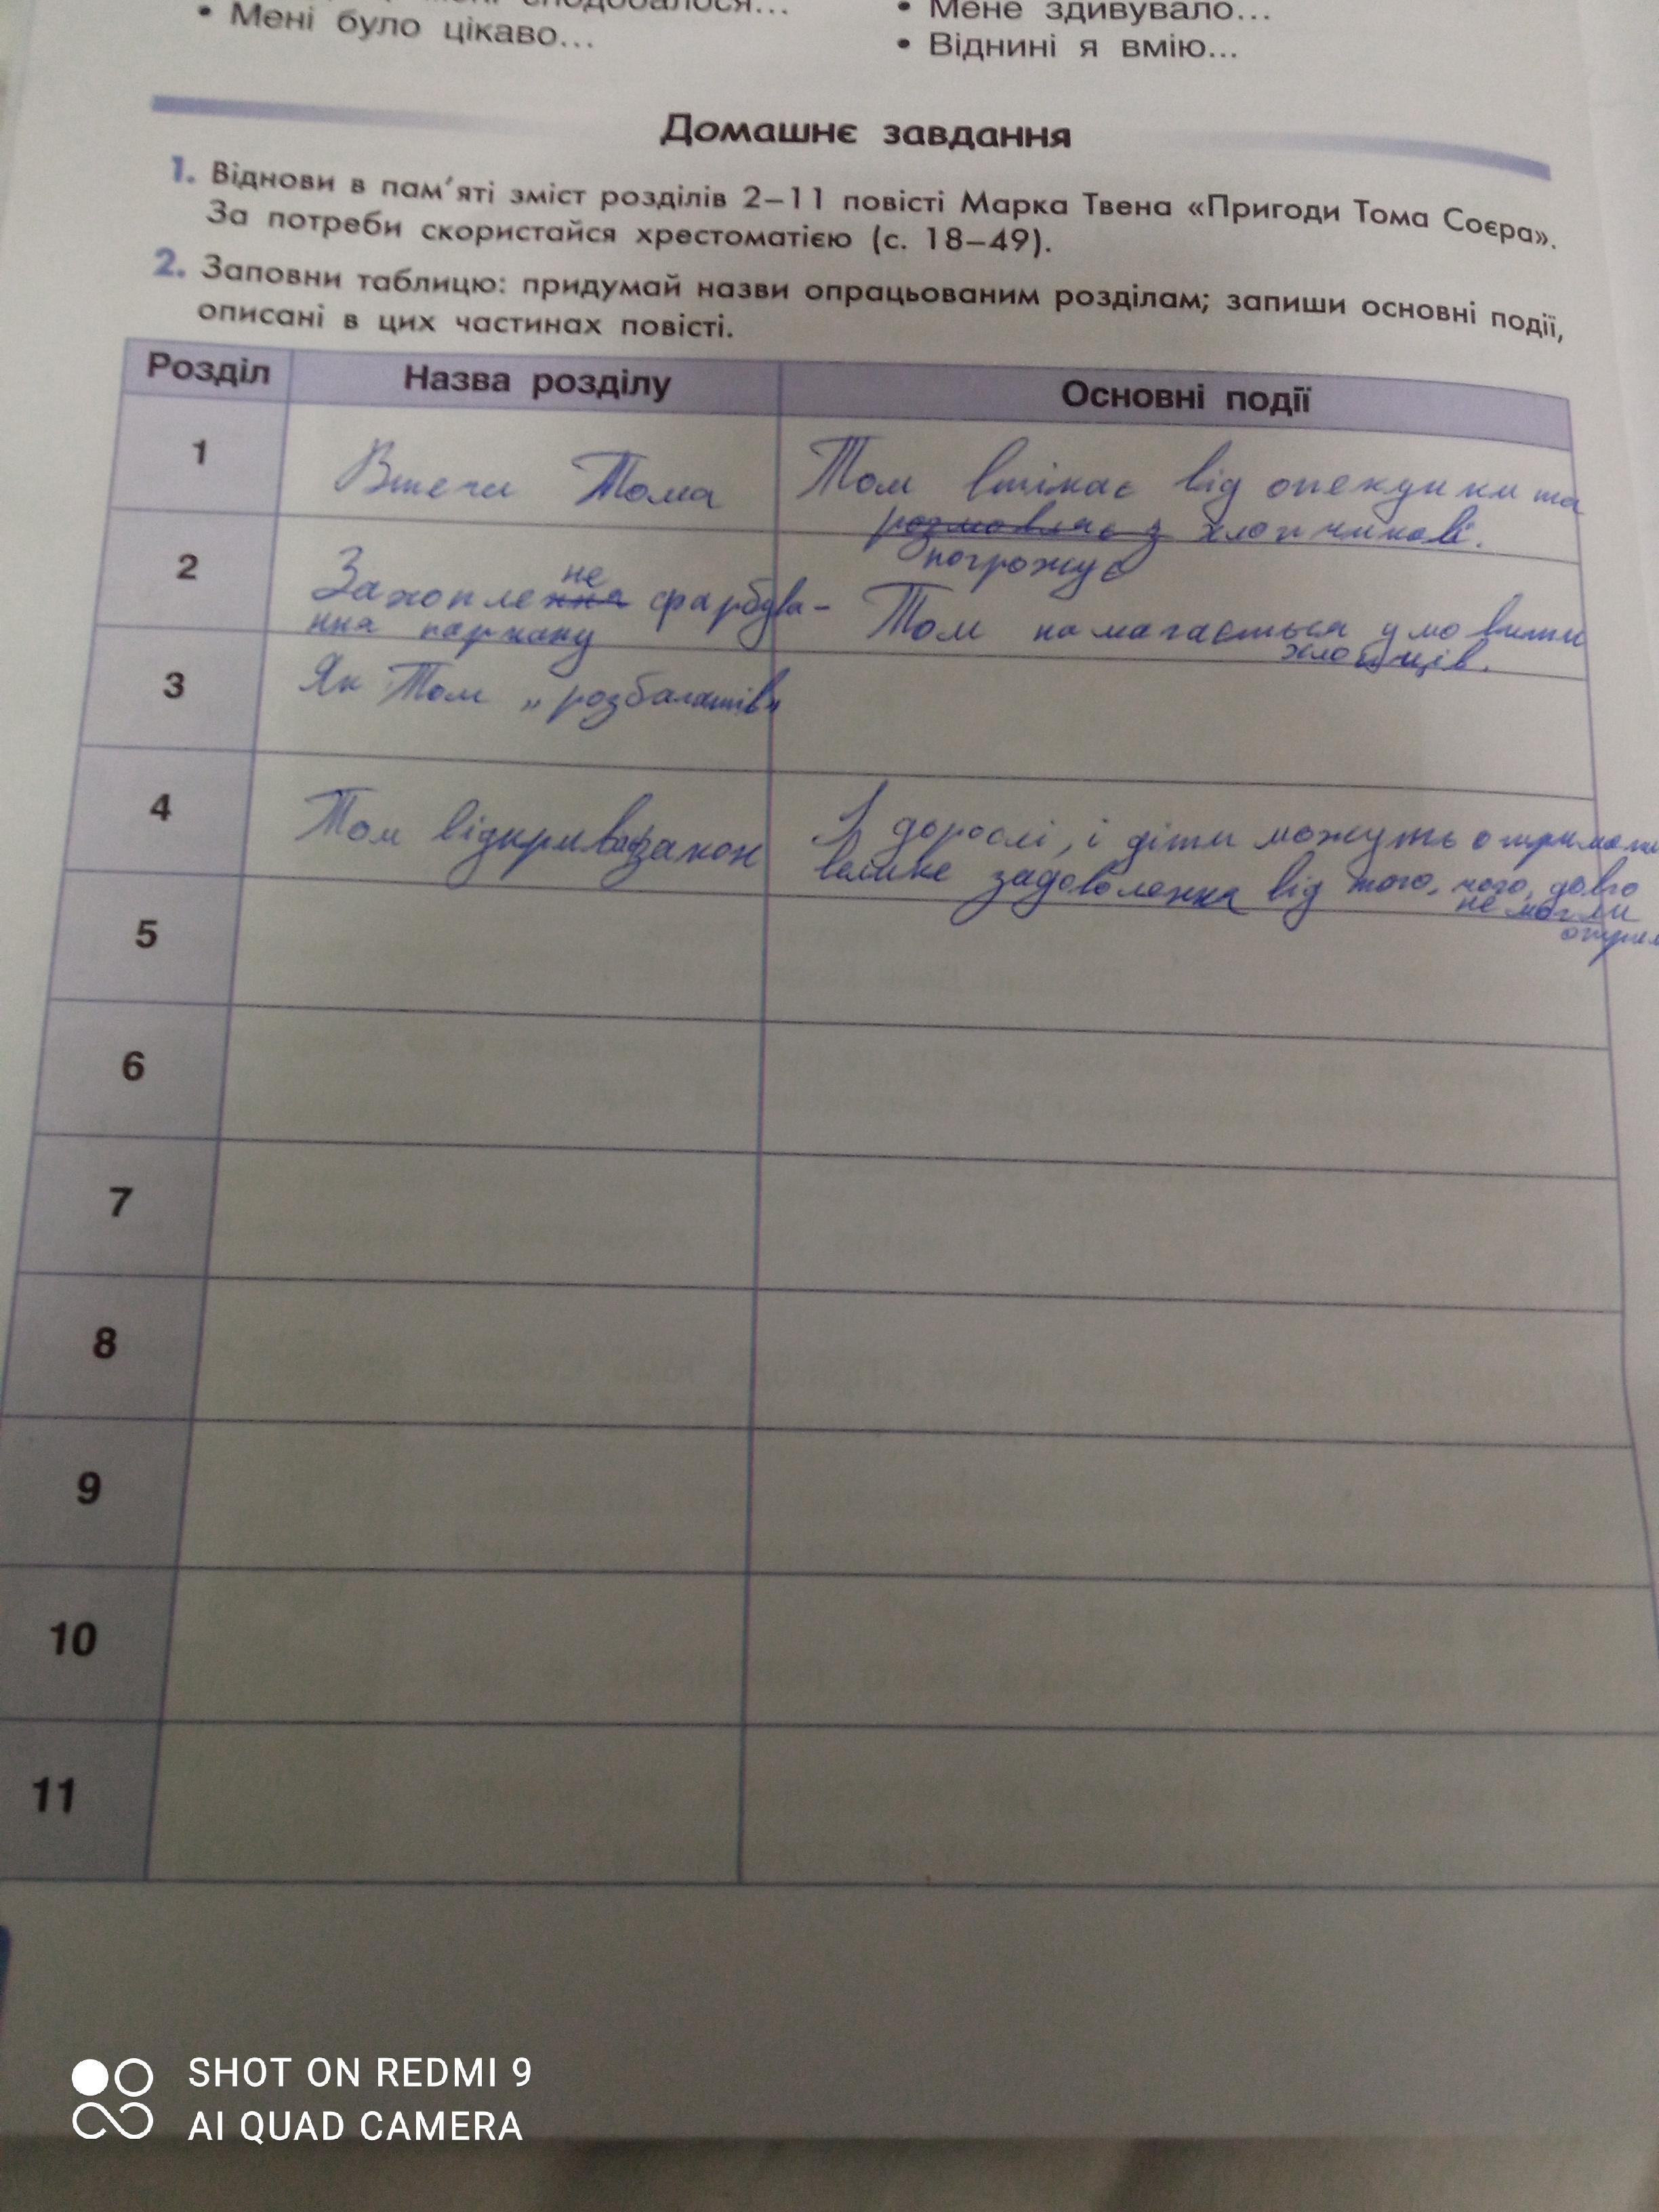 • Мені було цікаво...
• Мене здивувало...
• Віднині я вмію...
Домашнє завдання
1. Віднови в пам’яті зміст розділів 2–11 повісті Марка Твена «Пригоди Тома Соєра».
За потреби скористайся хрестоматією (с. 18–49).
2. Заповни таблицю: придумай назви опрацьованим розділам; запиши основні події,
описані в цих частинах повісті.
Розділ Назва розділу Основні події
1 Втечи Тома Том втікає від опекунки та
розмовляє з хлопчикові.
погрожує
2 Захоплення не фарбува-
ння паркану
Том намагається умовити
хлопців.
3 Як Том „розбагатів„
4 Том відкриває закон І дорослі, і діти можуть отримати
велике задоволення від того, чого, довго
не могли
5
6
7
8
9
10
11
SHOT ON REDMI 9
AI QUAD CAMERA